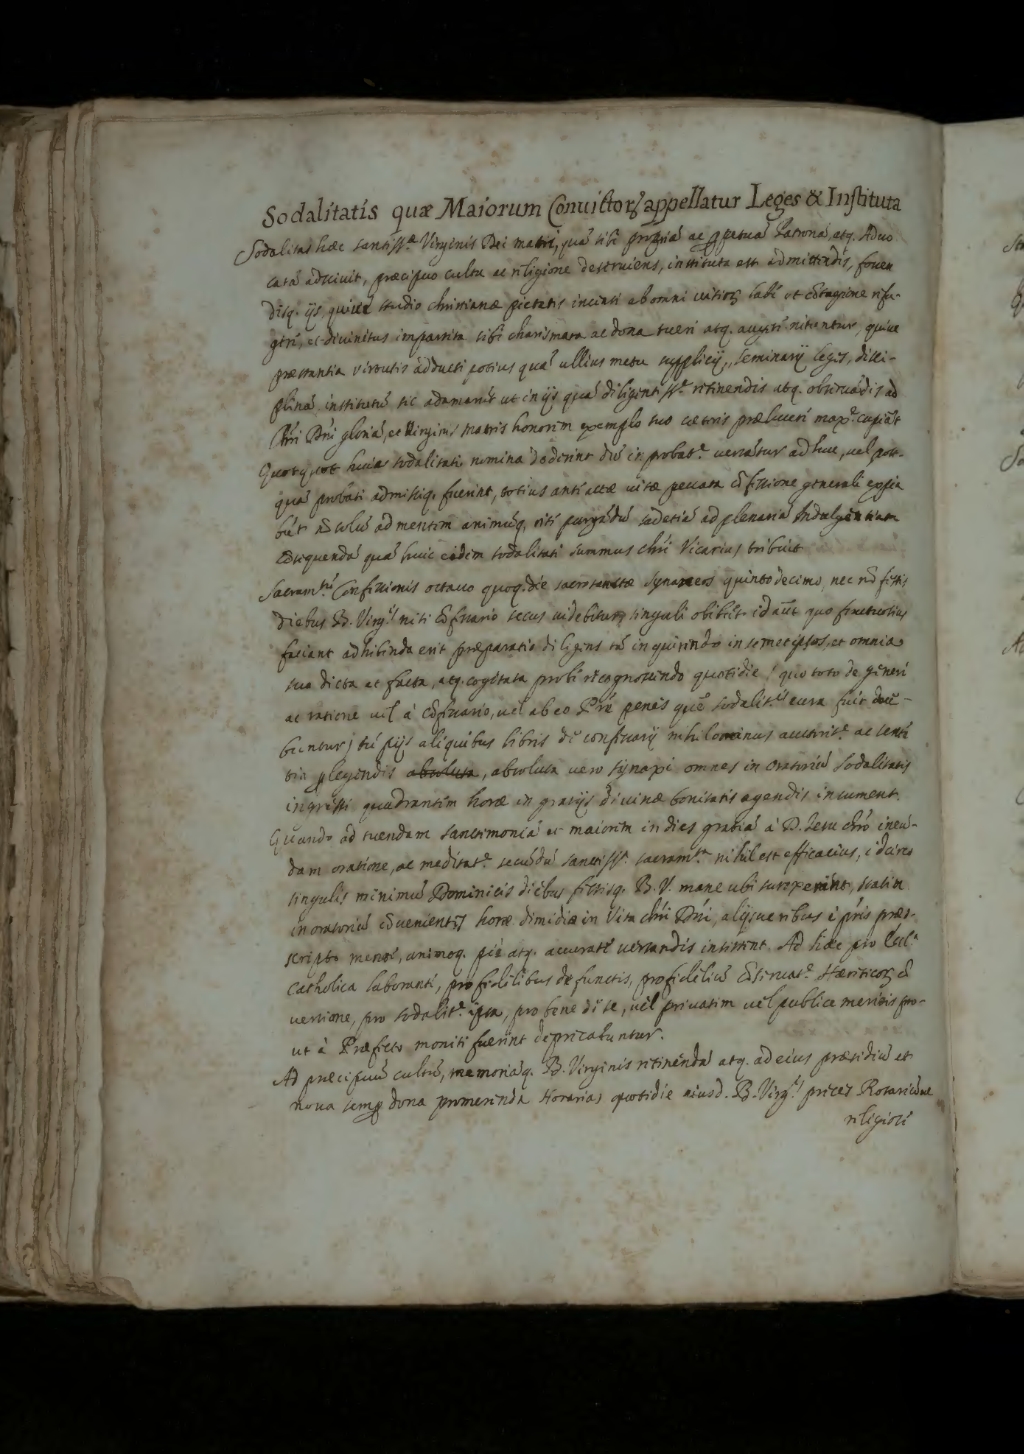 Sodalitatis quæ Maiorum Conuictorꝝ appellatur Leges & Instituta
Sodalitas hæc santiss.ᵉ Virginis Dei matri, quā sibi propriā ac ꝑpetuā Patronā atq. Aduo
catā adsciuit, præcipuo cultu ac religione deseruiens, instituta est admittendis, fouen
disq. ijs, qui studio christianæ pietatis incensi ab omni uitiorꝝ labē et cōtagione refu-
gere, et diuinitus impartita sibi charismata ac dona tueri atq. augere nitentur, quiue
præstantia virtutis adducti potius quā ullius metu supplicij, seminarij leges, disci-
plinā institutū sic adamarūt ut in ijs quā diligentiss.ᵉ retinendis atq. obseruādis ad
Chri Dñi gloriā, et Virginis matris honorem exemplo suo cæteris prælucere max.ᵉ cupiāt
Quotq̨uot huic sodalitati nomina dederint dū in probat.ᵉ uersātur adhuc, uel post-
quā probati admissiq. fuerint, totius ante actæ uitæ peccata cōfessione generali expia
būt nō solū ad mentem animūq. rite purgādū sed etiā ad plenariā Indulgentiam
cōsequendā quā huic eidem sodalitati summus chri Vicarius tribuit
Sacram.ᵗᵘ Confessionis octauo quoq. die sacrosanctæ synaxeos quintodecimo, nec nō festis
diebus B. Virg.ˢ nisi cōfessario secus uidebitur, singuli obibūt. id aūt quo fructuosius
faciant adhibenda erit præparatio diligens tū inquirendo in semetipsos, et omnia
sua dicta ac facta, atq. cogitata probe recognoscendo quotidie (quo toto de genere
ac ratione uel à cōfessario, uel ab eo Pr̄e penes quē sodalit.ˢ cura fuit doce-
buntur) tū pijs aliquibus libris de confessarij nihilominus auctorit.ᵉ ac sentē
tia ꝑlegendis absoluta, absoluta uero synaxi omnes in oratoriū sodalitatis
ingressi quadrantem horæ in gratijs diuinæ bonitatis agendis insument.
Quando ad tuendam sanctimoniā et maiorem in dies gratiā à D. Iesu chro ineun-
dam oratione, ac meditat.ᵉ secūdū santiss. sacram.ᵗᵃ nihil est efficacius, idcirco
singulis minimū Dominicis diebus festisq. B. V. mane ubi surrexerint, statim
in oratoriū cōuenientes horæ dimidiæ in Vita chri Dñi, alijsue rebus è pr̄is præs-
cripto mente, animoq. pie atq. accurate uersandis insistent. Ad hæc pro Eccl.ᵃ
catholica laboranti, pro fidelibus defunctis, pro fidelium cōseruat.ᵉ Hæreticorꝝ cō
uersione, pro sodalit.ᵉ ipsa, pro bene de se, uel priuatim uel publice meritis pro-
ut à Præfecto moniti fuerint deprecabuntur.
Ad præcipuū cultū, memoriāq. B. Virginis retinendā atq. ad eius præsidiū et
noua semꝑ dona promerenda Horarias quotidie eiusd. B. Virg.ˢ preces Rosariūue
religiosi